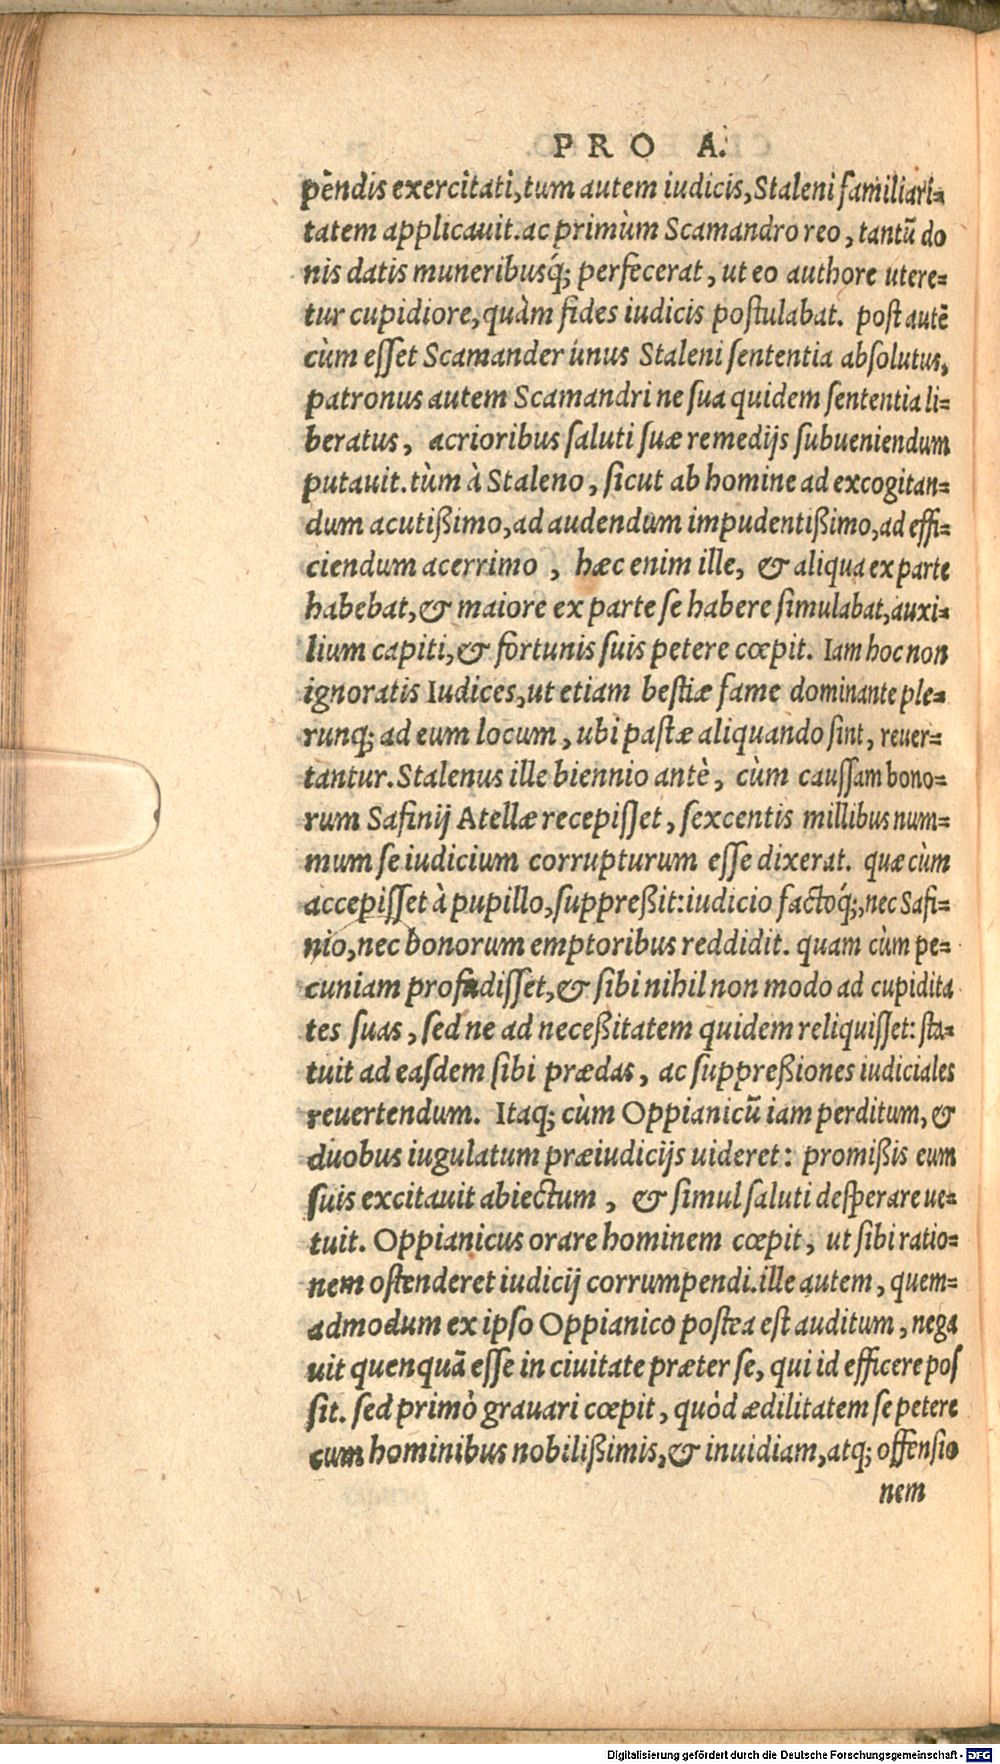 PRO A.
pēndis exercitati, tum autem iudicis, Staleni familiari-
tatem applicauit. ac primùm Scamandro reo, tantū do
nis datis muneribusq́; perfecerat, ut eo authore utere-
tur cupidiore, quàm fides iudicis postulabat. post autē
cùm esset Scamander unus Staleni sententia absolutus,
patronus autem Scamandri ne sua quidem sententia li-
beratus, acrioribus saluti suæ remedijs subueniendum
putauit. tùm à Staleno, sicut ab homine ad excogitan-
dum acutißimo, ad audendum impudentißimo, ad effi-
ciendum acerrimo, hæc enim ille, & aliqua ex parte
habebat, & maiore ex parte se habere simulabat, auxi-
lium capiti, & fortunis suis petere cœpit. Iam hoc non
ignoratis Iudices, ut etiam bestiæ fame dominante ple-
runq; ad eum locum, ubi pastæ aliquando sint, reuer-
tantur. Stalenus ille biennio antè, cùm caussam bono-
rum Safinij Atellæ recepisset, sexcentis millibus num-
mum se iudicium corrupturum esse dixerat. quæ cùm
accepisset à pupillo, suppreßit: iudicio factoq́;, nec Safi-
nio, nec bonorum emptoribus reddidit. quam cùm pe-
cuniam profudisset, & sibi nihil non modo ad cupidita
tes suas, sed ne ad neceßitatem quidem reliquisset: sta-
tuit ad easdem sibi prædas, ac suppreßiones iudiciales
reuertendum. Itaq; cùm Oppianicū iam perditum, &
duobus iugulatum præiudicijs uideret: promißis eum
suis excitauit abiectum, & simul saluti desperare ue-
tuit. Oppianicus orare hominem cœpit, ut sibi ratio-
nem ostenderet iudicij corrumpendi. ille autem, quem-
admodum ex ipso Oppianico postea est auditum, nega
uit quenquā esse in ciuitate præter se, qui id efficere pos
sit. sed primò grauari cœpit, quòd ædilitatem se petere
cum hominibus nobilißimis, & inuidiam, atq; offensio
nem
Digitalisierung gefördert durch die Deutsche Forschungsgemeinschaft - DFG